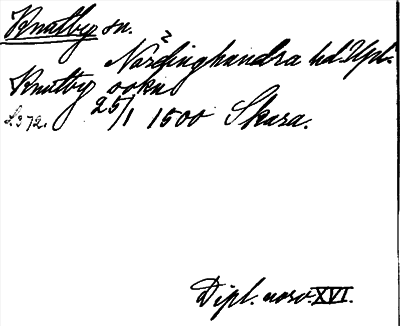 Knutby sn.
Närdinghundra hd. Upl.
Knutby sokn
S. 372. 25/1 1500 Skara.
Dipl. norv. XVI.